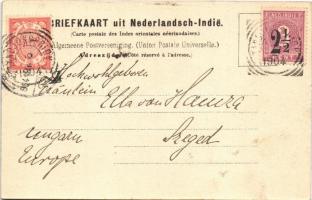 BRIEFKAART uit Nederlandsch-Indië.
(Carte postale des Indes orientales néerlandaises.)
Algemeene Postvereeniging. (Union Postale Universelle.)
Adreszijde. (Côté réservé à l'adresse.)
2½
1904
1904
Hochwohlgeboren
Fräulein Ella von
Ungarn
Szeged
Europe